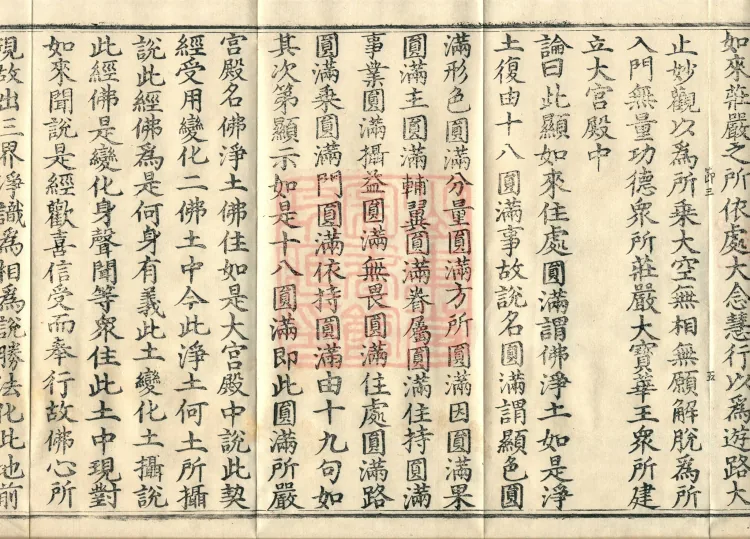 如來莊嚴之所依處大念慧行以爲遊路大
止妙觀以爲所乘大空無相無願解脫爲所
入門無量功德衆所莊嚴大寶華王衆所建
立大宮殿中
論曰此顯如來住處圓滿謂佛淨土如是淨
土復由十八圓滿事故說名圓滿謂顯色圓
滿形色圓滿分量圓滿方所圓滿因圓滿果
圓滿主圓滿輔翼圓滿眷屬圓滿住持圓滿
事業圓滿攝益圓滿無畏圓滿住處圓滿路
圓滿乘圓滿門圓滿依持圓滿由十九句如
其次第顯示如是十八圓滿即此圓滿所嚴
宮殿名佛淨土佛住如是大宮殿中說此契
經受用變化二佛土中今此淨土何土所攝
說此經佛爲是何身有義此土變化土攝說
此經佛是變化身聲聞等衆住此土中現對
如來聞說是經歡喜信受而奉行故佛心所
現故出三界淨識爲相爲說勝法化此地前